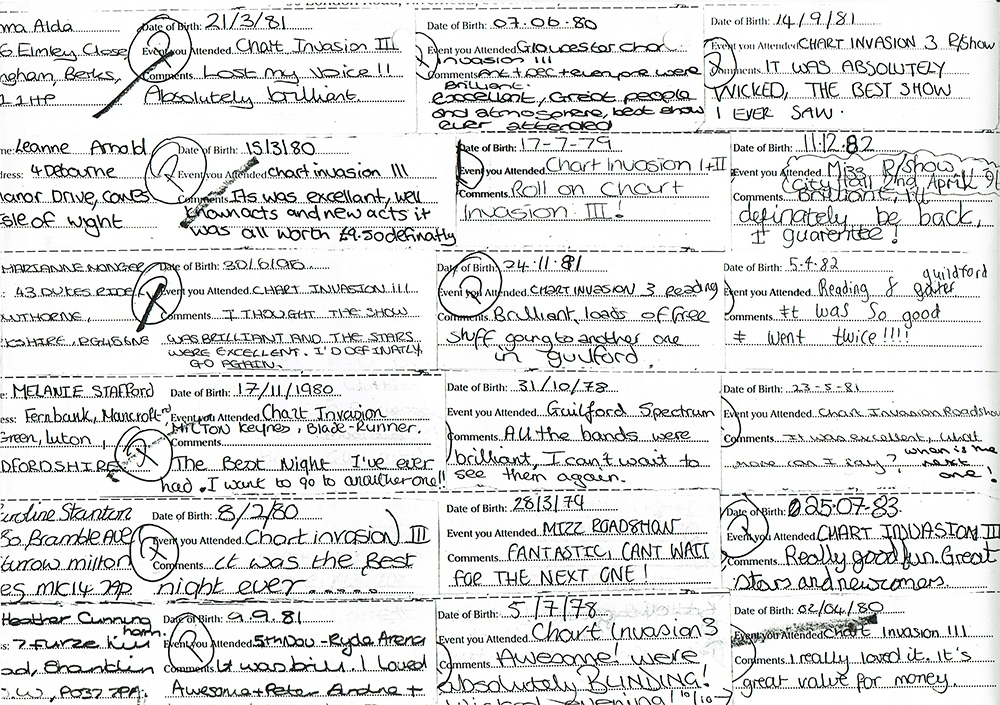 Date of Birth: 21/3/81
Event you Attended Chart Invasion III
Comments Lost my Voice!!
Absolutely brilliant.
Date of Birth: 07.06.80
Event you Attended Gloucester Chart
invasion !!!
Comments Ant + Dec + everyone were
Brilliant.
excellent, Great people
and atmosphere, best show
ever attended
Date of Birth: 14/9/81
Event you Attended CHART INVASION 3 R/Show
Comments IT WAS ABSOLUTELY
WICKED, THE BEST SHOW
I EVER SAW.
me: Leanne Arnold
ress: 4 Debourne
Manor Drive, Cowes
Isle of wight
Date of Birth: 15/3/80
Event you Attended chart invasion III
Comments Its was excellent, well
known acts and new acts it
was all worth £9.50 definatly
Date of Birth: 17-7-79
Event you Attended Chart Invasion I+II
Comments Roll on Chart
Invasion III!
Date of Birth: 11.12.82
Event you Attended Mizz R/Show
(City Hall 2nd April 96
Comments Brilliant, I'll
definately be back,
I guarentee!
MARIANNE NONGER
: 43 DUKES RIDE
OWTHORNE,
KSHIRE, RG45 6NE
Date of Birth: 30/6/95
Event you Attended CHART INVASION !!!
Comments I THOUGHT THE SHOW
WAS BRILLIANT AND THE STARS
WERE EXCELLENT. I'D DEFINATLY
GO AGAIN.
Date of Birth: 24.11.81
Event you Attended CHART INVASION 3 Reading
Comments Brilliant, loads of free
stuff, going to another one
in guilford
Date of Birth: 5.4.82
guildford
Event you Attended Reading & gater
Comments It was so good
I went twice!!!!
e: MELANIE STAFFORD
ess: Fernbank, Mancroft
Green, Luton,
DFORDSHIRE
Date of Birth: 17/11/1980
Event you Attended Chart Invasion
MILTON Keynes, Blade-Runner.
Comments
The Best Night I've ever
had. I want to go to anauther one!!
Date of Birth: 31/10/78
Event you Attended Guilford Spectrum
Comments All the bands were
brilliant, I can't wait to
see them again.
Date of Birth: 23-5-81
Event you Attended Chart Invasion Roadshow
Comments It was excellent, what
more can I say? when is the
next
one!
Caroline Stanton
30 Bramble Ave
urrow milton
es MK14 7AP
Date of Birth: 8/2/80
Event you Attended Chart invasion III
Comments It was the Best
night ever......
Date of Birth: 28/3/79
Event you Attended MIZZ ROADSHOW
Comments FANTASTIC, CANT WAIT
FOR THE NEXT ONE!
Date of Birth: 025.07.83
Event you Attended CHART INVASION III
Comments Really good fun. Great
stars and newcomers.
Heather Cunning
ham.
s: 7 Furze
ad, Shanklin
I.W, PO37 7PA.
Date of Birth: 9.9.81
Event you Attended 5th Nov - Ryde Arena
Comments It was brill. I loved
Awesome + Peter Andre +
Date of Birth: 5/7/78
Event you Attended Chart Invasion 3
Comments Awesome! were
absolutely BLINDING!
Wicked evening! (10/10)
Date of Birth: 02/04/80
Event you Attended Chart Invasion !!!
Comments I really loved it. It's
great value for money.